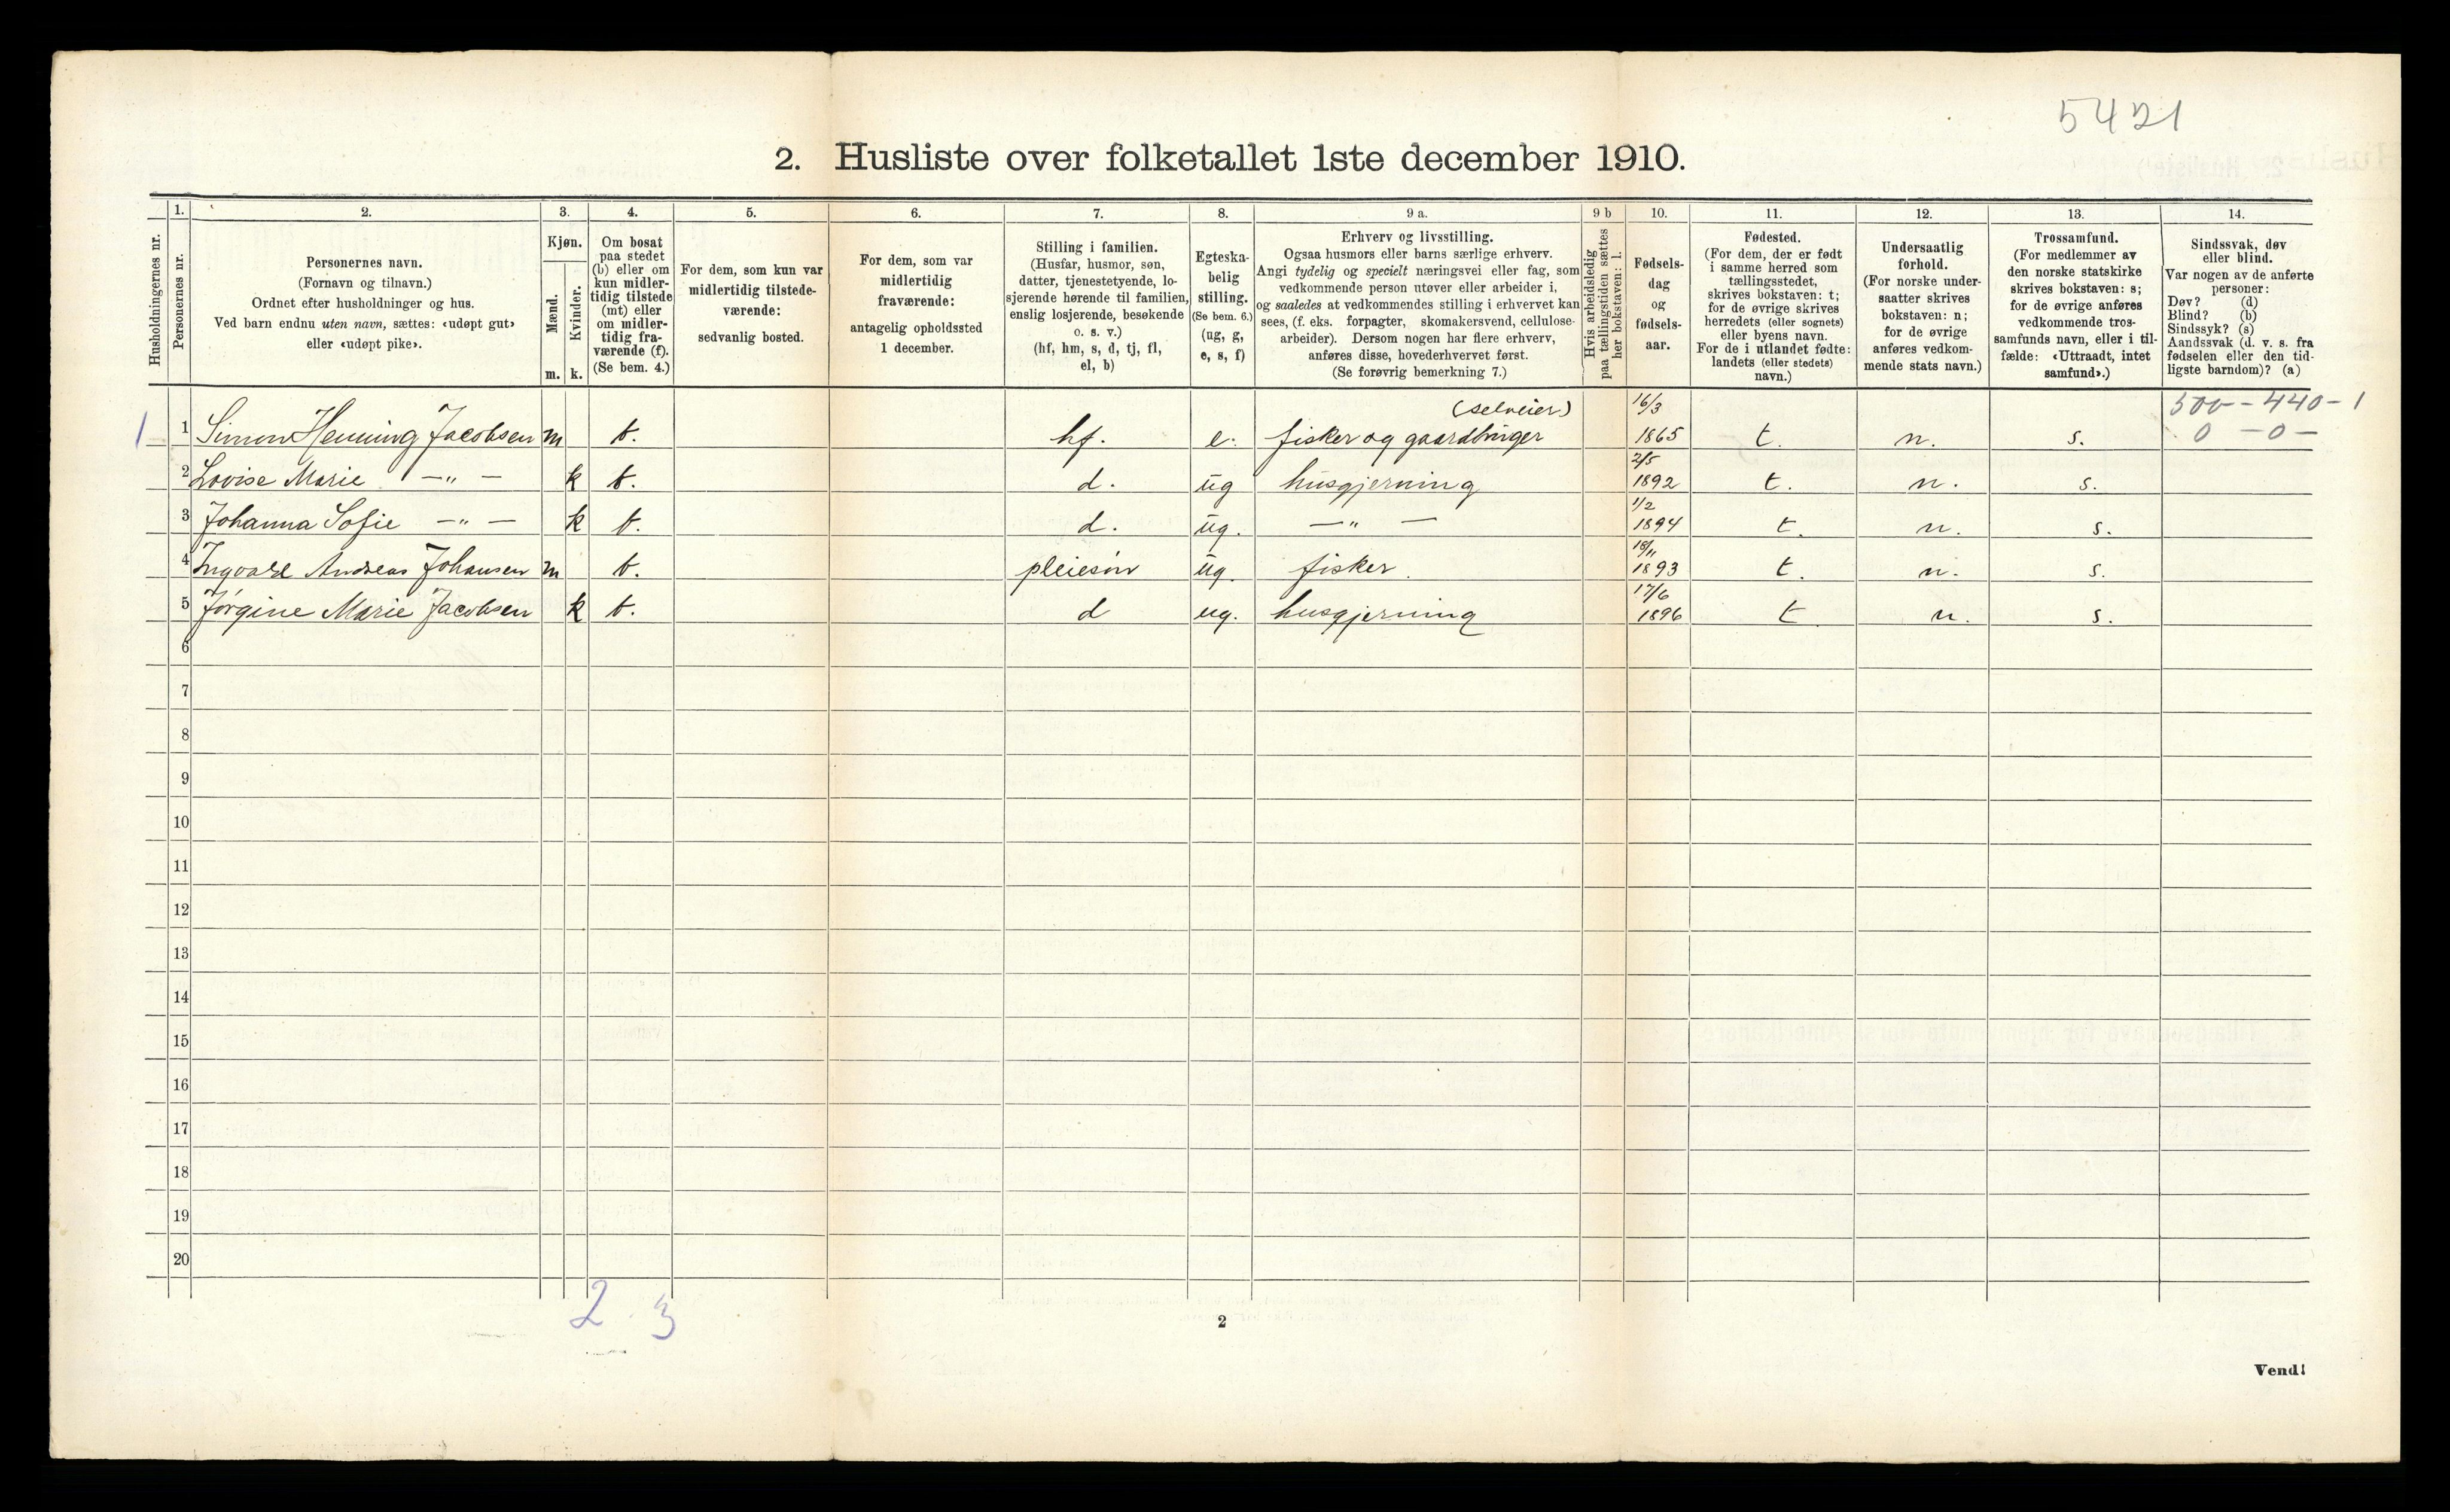 5421
2. Husliste over folketallet 1ste december 1910.
Husholdningernes nr.
1.
Personernes nr.
2.
Personernes navn.
(Fornavn og tilnavn.)
Ordnet efter husholdninger og hus.
Ved barn endnu uten navn, sættes: «udøpt gut»
eller «udøpt pike».
3.
Kjøn.
Mænd.
Kvinder.
m. k.
4.
Om bosat
paa stedet
(b) eller om
kun midler-
tidig tilstede
(mt) eller
om midler-
tidig fra-
værende (f).
(Se bem. 4.)
5.
For dem, som kun var
midlertidig tilstede-
værende:
sedvanlig bosted.
6.
For dem, som var
midlertidig
fraværende:
antagelig opholdssted
1 december.
7.
Stilling i familien.
(Husfar, husmor, søn,
datter, tjenestetyende, lo-
sjerende hørende til familien,
enslig losjerende, besøkende
o. s. v.)
(hf, hm, s, d, tj, fl,
el, b)
8.
Egteska-
belig
stilling.
(Se bem. 6.)
(ug, g,
e, s, f)
9 a.
Erhverv og livsstilling.
Ogsaa husmors eller barns særlige erhverv.
Angi tydelig og specielt næringsvei eller fag, som
vedkommende person utøver eller arbeider i,
og saaledes at vedkommendes stilling i erhvervet kan
sees, (f. eks. forpagter, skomakersvend, cellulose-
arbeider). Dersom nogen har flere erhverv,
anføres disse, hovederhvervet først.
(Se forøvrig bemerkning 7.)
9 b
Hvis arbeidsledig
paa tællingstiden sættes
her bokstaven: l.
10.
Fødsels-
dag
og
fødsels-
aar.
11.
Fødested.
(For dem, der er født
i samme herred som
tællingsstedet,
skrives bokstaven: t;
for de øvrige skrives
herredets (eller sognets)
eller byens navn.
For de i utlandet fødte:
landets (eller stedets)
navn.)
12.
Undersaatlig
forhold.
(For norske under-
saatter skrives
bokstaven: n;
for de øvrige
anføres vedkom-
mende stats navn.)
13.
Trossamfund.
(For medlemmer av
den norske statskirke
skrives bokstaven: s;
for de øvrige anføres
vedkommende tros-
samfunds navn, eller i til-
fælde: «Uttraadt, intet
samfund».)
14.
Sindssvak, døv
eller blind.
Var nogen av de anførte
personer:
Døv? (d)
Blind? (b)
Sindssyk? (s)
Aandssvak (d. v. s. fra
fødselen eller den tid-
ligste barndom)? (a)
(selveier) 16/3 500-440-1
1 1 Simon Henning Jacobsen m b. hf. e. fisker og gaardbruger 1865 t. n. s. 0 -0-
2/5
2 Lovise Marie —„— k b. d. ug husgjerning 1892 t. n. s.
1/2
3 Johanna Sofie —„— k b. d. ug. —„— 1894 t. n. s.
18/11
4 Ingvald Andreas Johansen m b. pleiesøn ug. fisker. 1893 t. n. s.
17/6
5 Jørgine Marie Jacobsen k b. d ug. husgjerning 1896 t. n. s.
6
7
8
9
10
11
12
13
14
15
16
17
18
19
20
2 3
2
Vend!